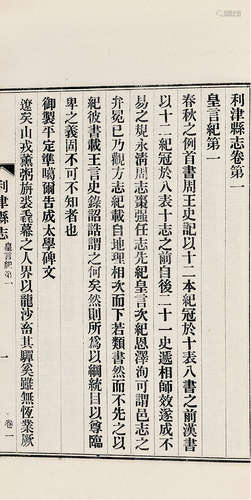 利津縣志卷第一
皇言紀第一
春秋之例首書周王史記以十二本紀冠於十表八書之前漢書
以十二紀冠於八表十志之前自後二十一史遞相師效遂成不
易之規永清周志棗强任志先紀皇言次紀恩澤洵可謂邑志之
弁冕已乃觀方志紀載自地理相次而下若類書然而不先之以
紀彼書載王言史錄詔誥謂之何矣然則所爲以綱統目以尊臨
卑之義固不可不知者也
御製平定準噶爾告成太學碑文
遼矣山戎薰粥旃裘毳幕之人界以龍沙畜其驒奚雖無恆業厥
利津縣志
皇言紀第一
一
卷一